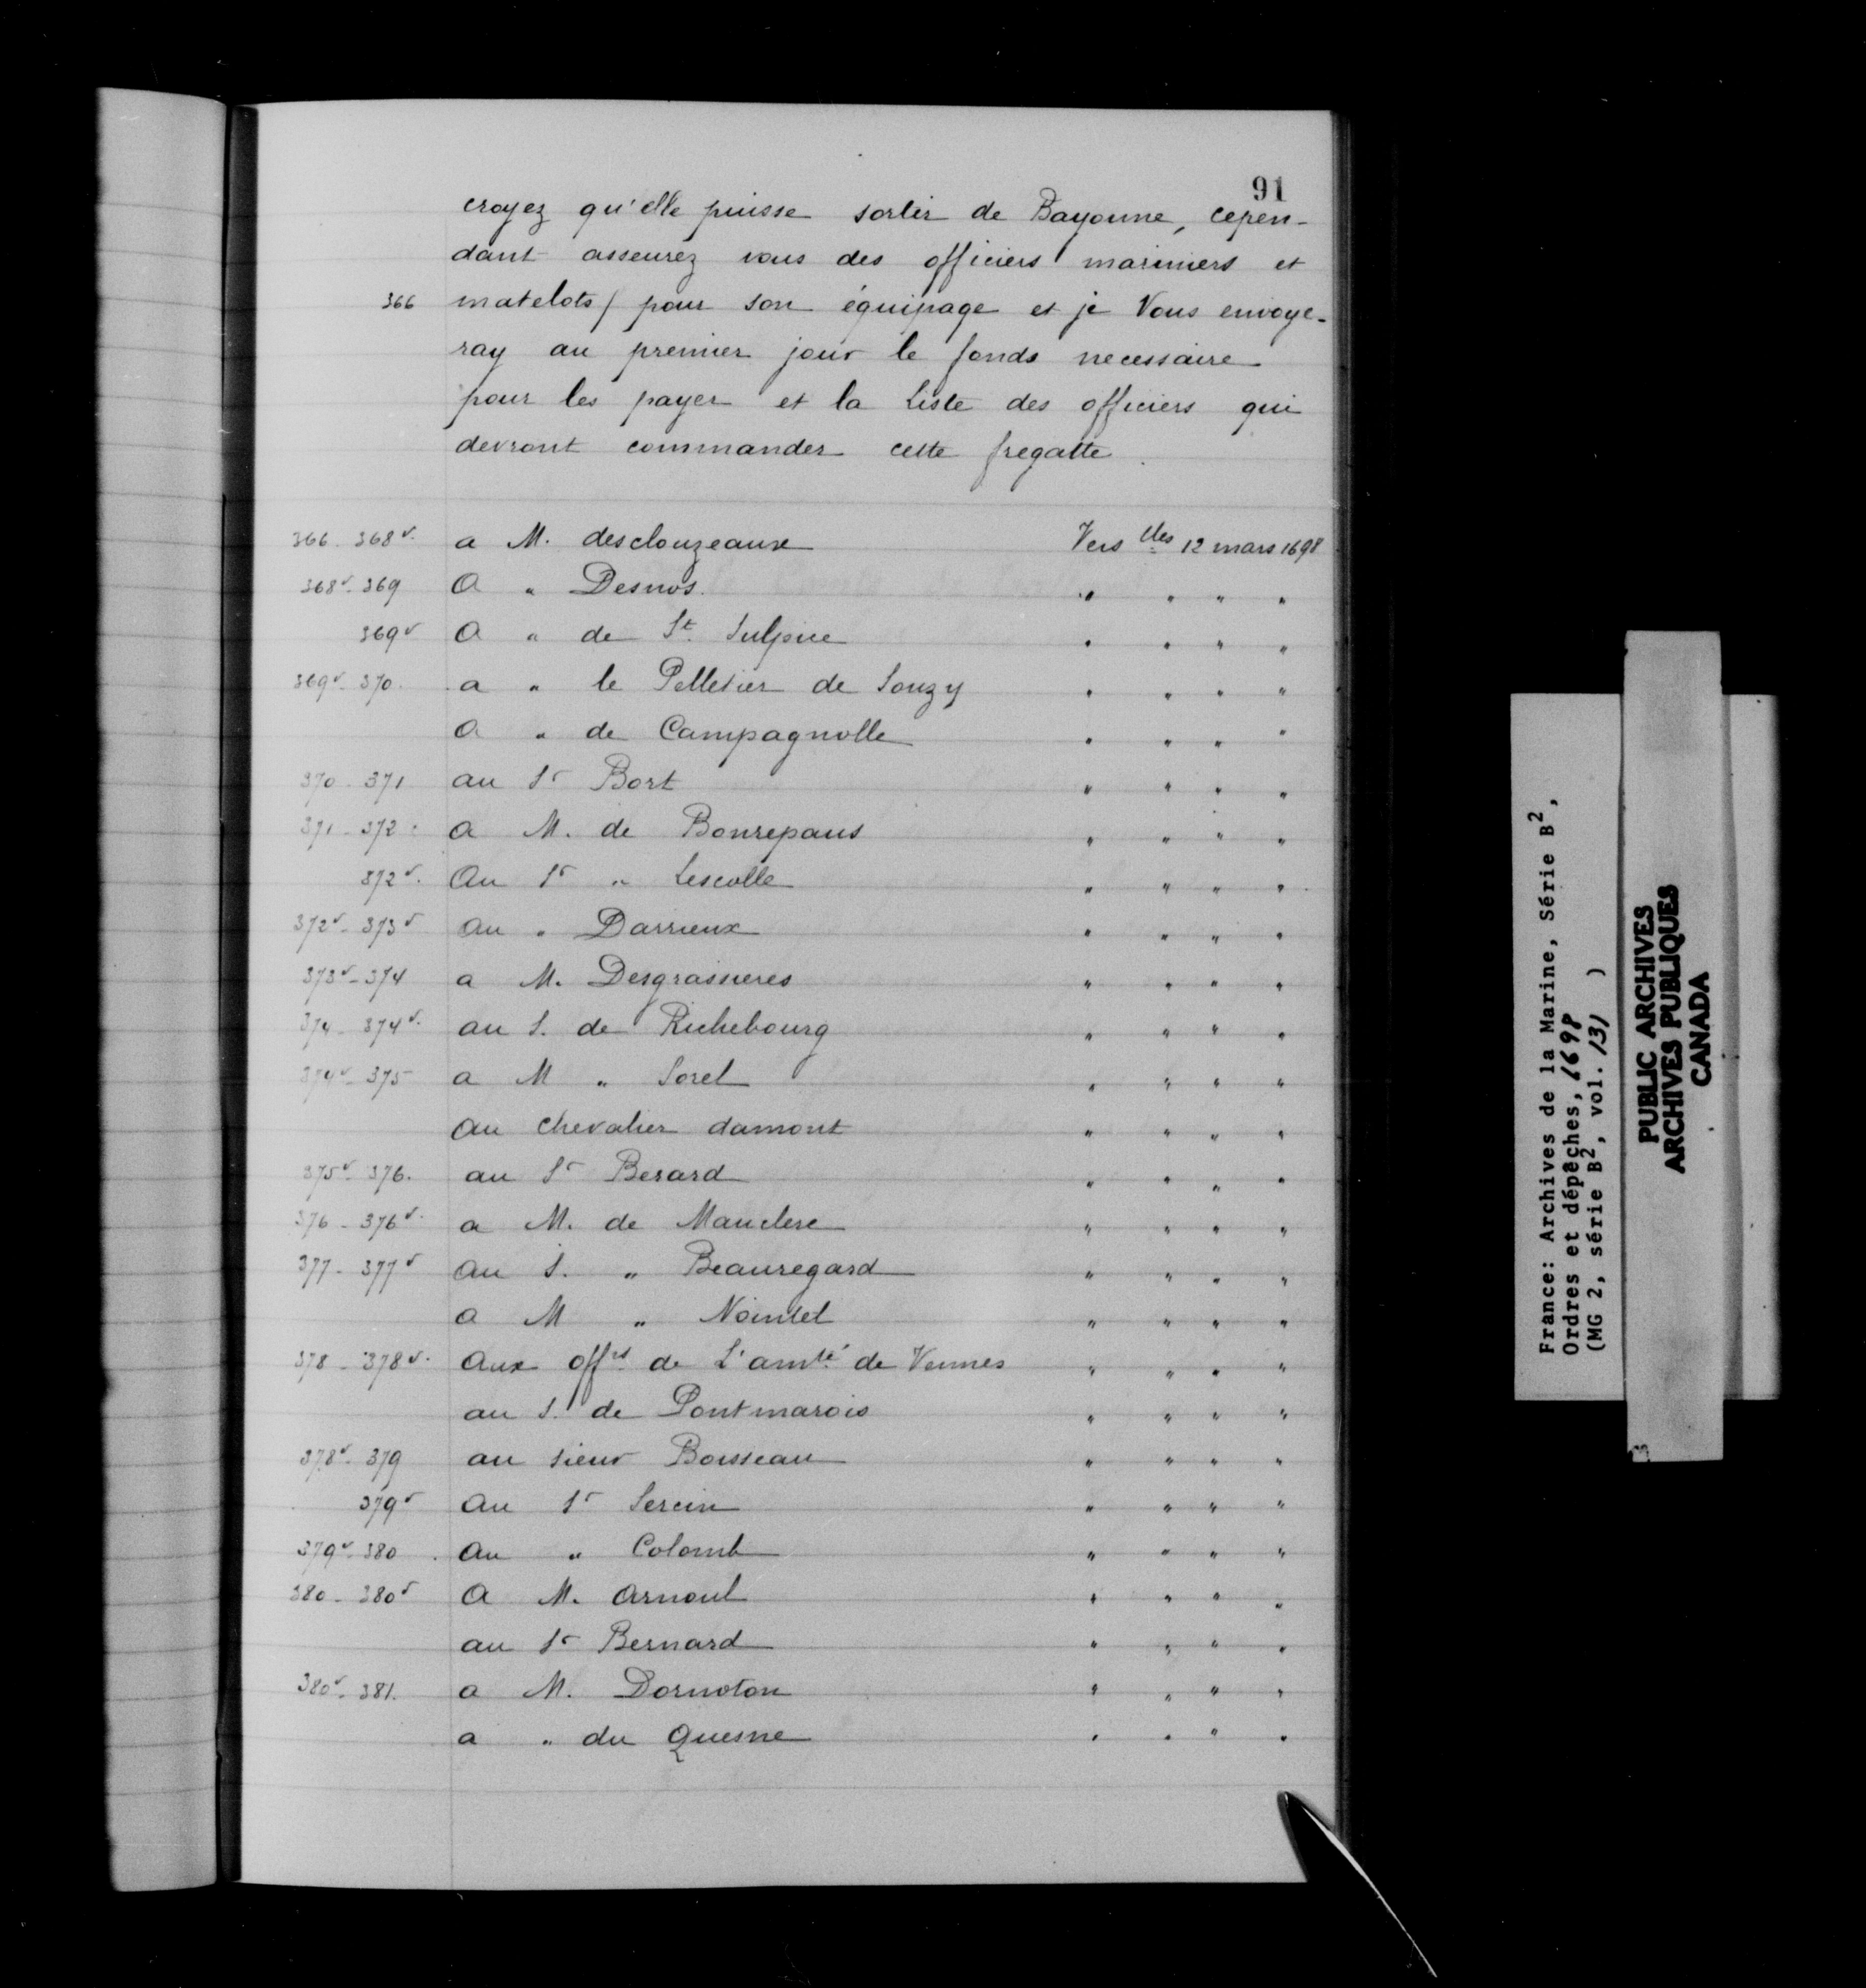 91
croyez qu'elle puisse sortir de Bayonne, cepen-
dant asseurez vous des officiers mariniers et
366 matelots / pour son équipage et je Vous envoye-
ray au premier jour le fonds necessaire
pour les payer et la Liste des officiers qui
devront commander cette fregatte.
366 - 368v. a M. desclouzeaux Vers lles 12 mars 1698
368v - 369 A " Desnos. " " " "
369v A " de St. Sulpice " " " "
369v - 370. a " le Pelletier de Souzy " " " "
A " de Campagnolle " " " "
370 - 371 au Sr Bort " " " "
371 - 372. a M. de Bonrepaus " " " "
372v. Au Sr " Lescolle " " " "
372v - 373v au " Darrieux " " " "
373v - 374 a M. Desgrassieres " " " "
374 - 374v. au S. de Richebourg " " " "
374v - 375 a M " Sorel " " " "
au chevalier damont " " " "
375v - 376. au Sr Berard " " " "
376 - 376v. a M. de Mauclere " " " "
377 - 377v au S. " Beauregard " " " "
a M " Nointel " " " "
378 - 378v. Aux offrs de L'amté de Vennes " " " "
au S. de Pontmarois " " " "
378v - 379 au sieur Boisseau " " " "
379v Au Sr Sercin " " " "
379v - 380. Au " Colomb " " " "
380 - 380v A M. Arnoul " " " "
au Sr Bernard " " " "
380v - 381. a M. Dornoton " " " "
a " du Quesne " " " "
France: Archives de la Marine, Série B2,
Ordres et dépêches, 1698
(MG 2, série B2, vol. 131 )
PUBLIC ARCHIVES
ARCHIVES PUBLIQUES
CANADA